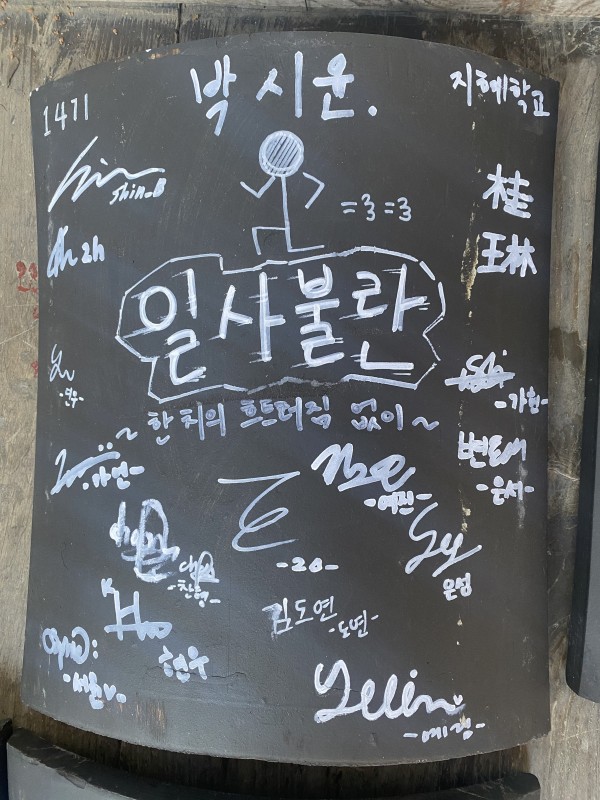 1471
박시윤.
지혜학교
shin_B
=3=3
桂
王林
일사불란
~ 한 치의 흐트러짐 없이 ~
-연우-
-가현-
-가연-
-예진-
-은서-
-20-
은성
-찬형-
김도연
-도연-
현우
-서윤♡-
yelin
-예림-